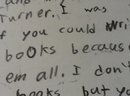 and
Turner. I was
f you could wri
books becaus
em all. I don'
books but y